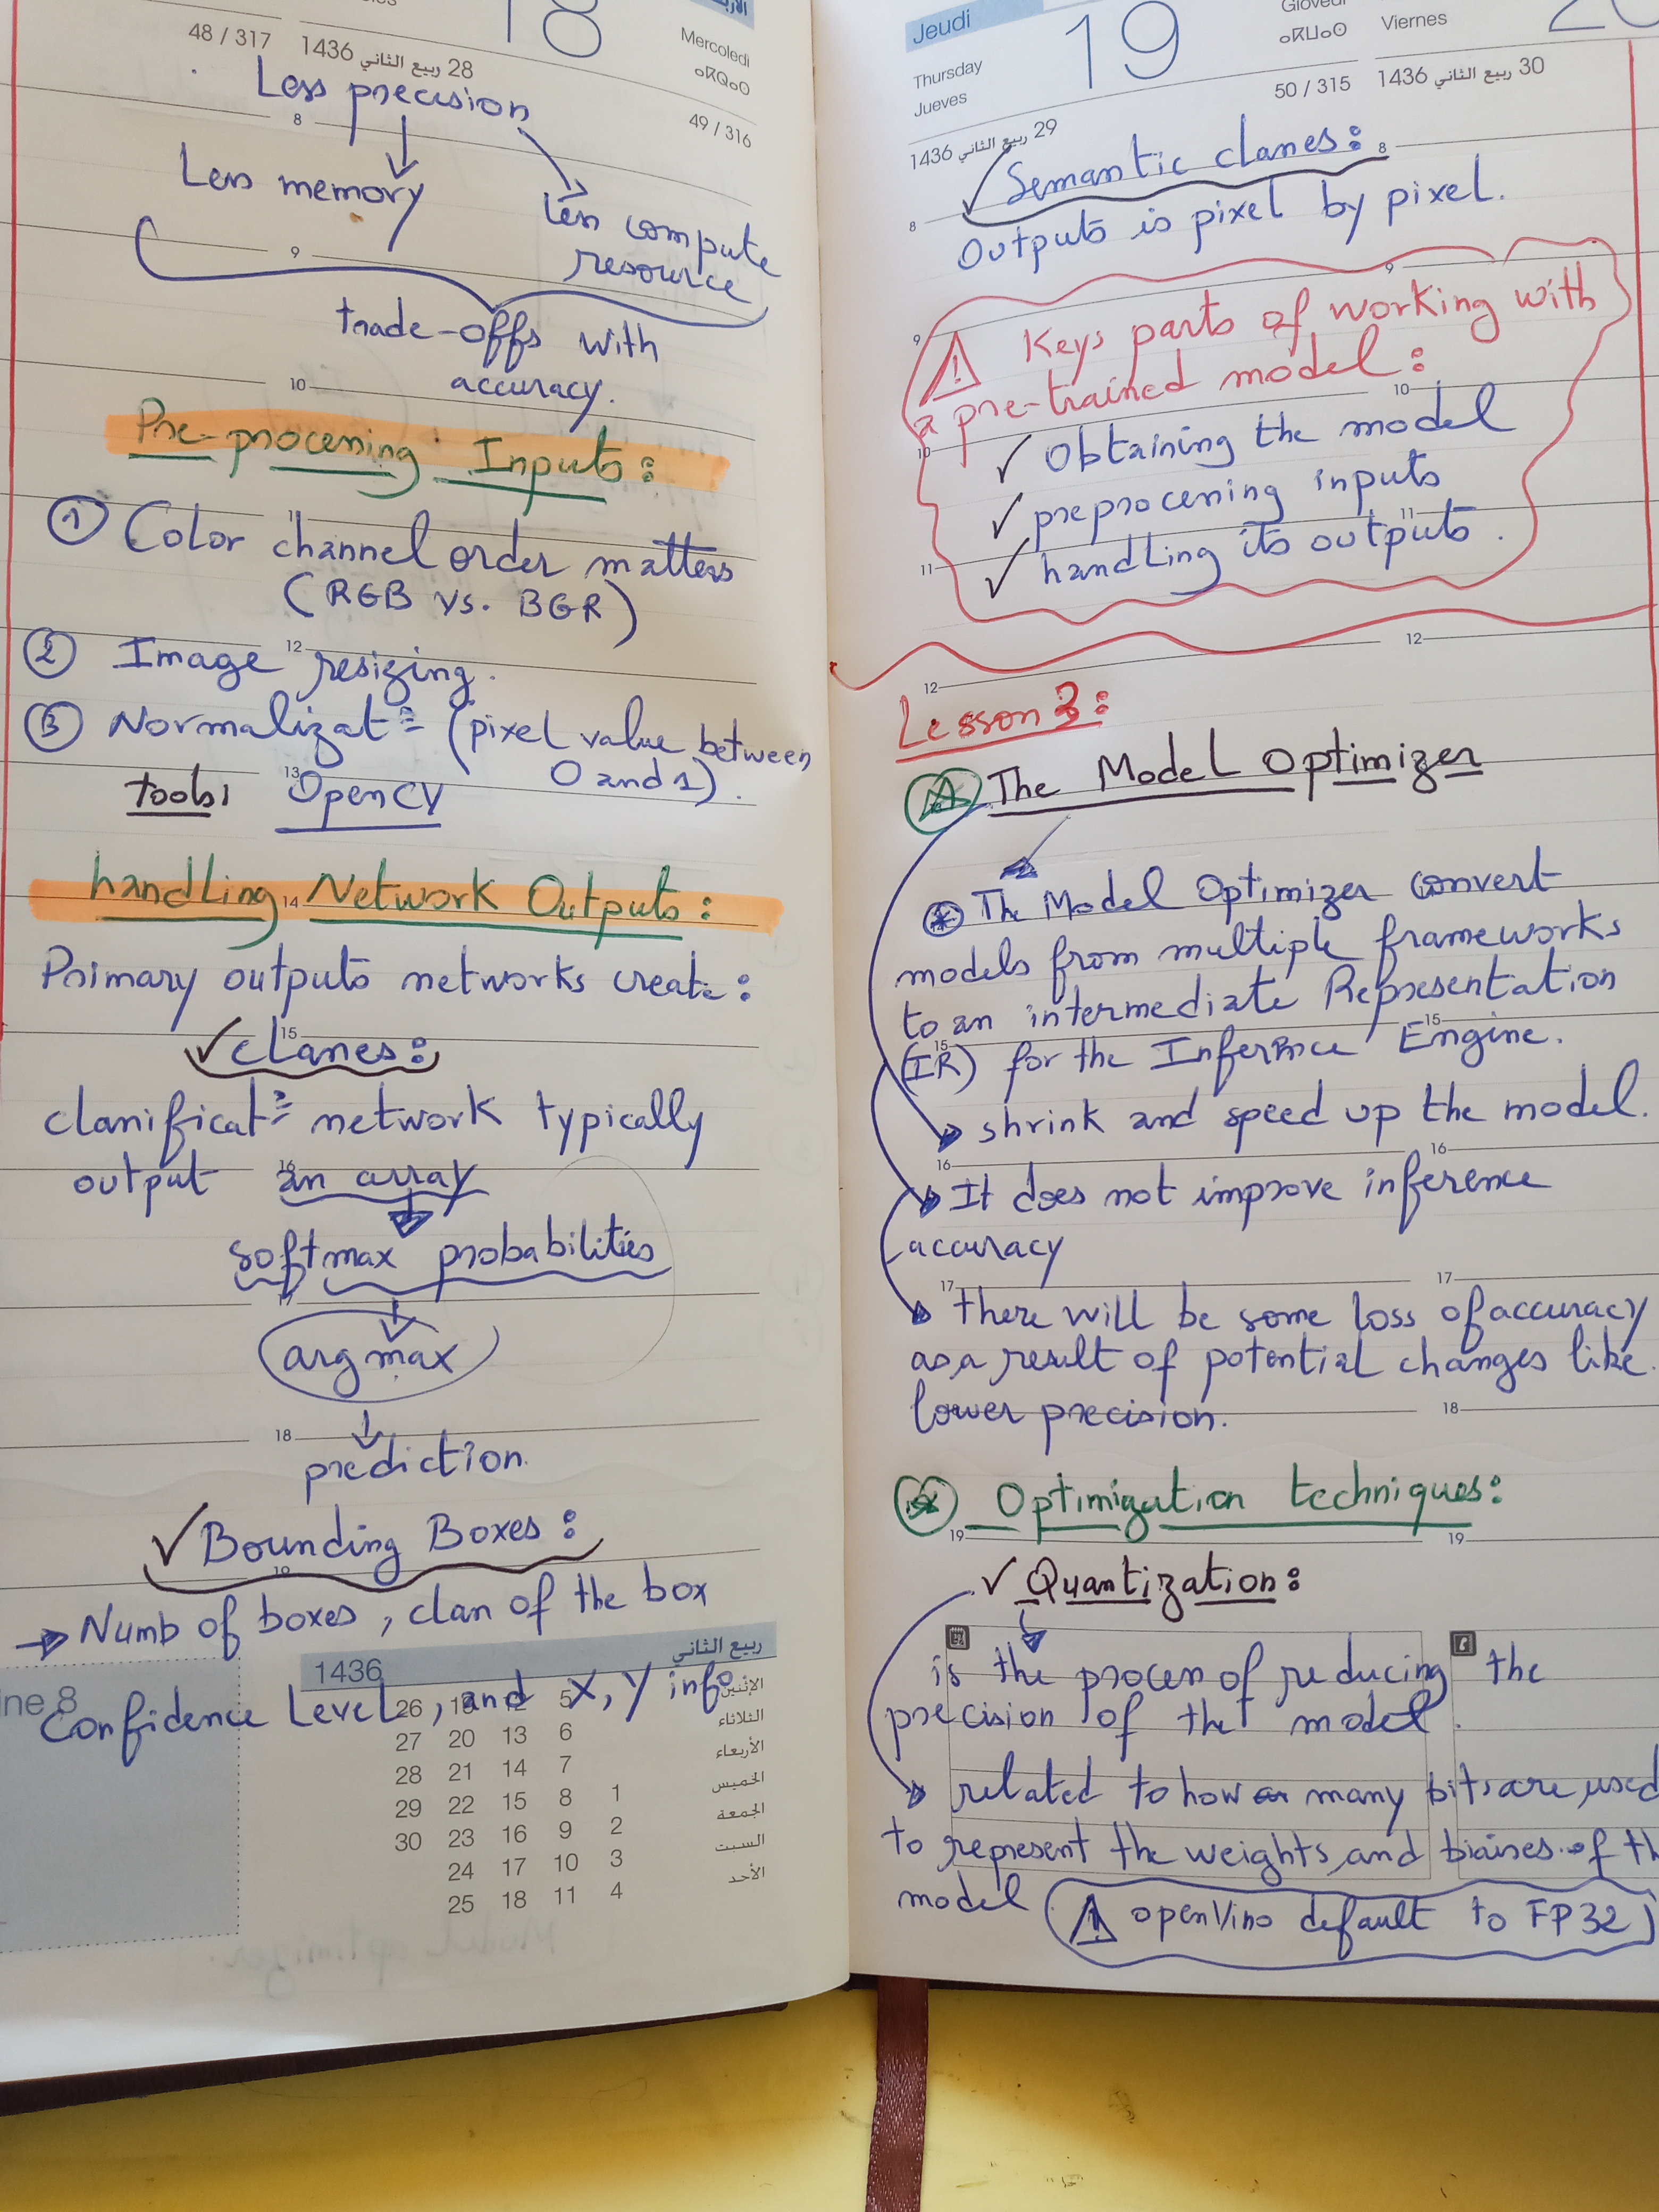 48 / 317
28 ربيع الثاني 1436
18
Mercoledi
ⴰⴽⵕⴰⵙ
49 / 316
Less precision
8
Less memory
Less compute
resource
9
trade-offs with
accuracy.
10
Pre-processing Inputs:
11
① Color channel order matters
(RGB vs. BGR)
12
② Image resizing.
③ Normalizat= (pixel value between
0 and 1).
13
tools: OpenCV
handling Network Outputs:
14
Primary outputs networks create:
15
✓ classes:
classificat= network typically
output an array
16
softmax probabilities
17
argmax
18
prediction.
✓ Bounding Boxes:
19
→ Numb of boxes, class of the box
Confidence Level, and X, Y info
ربيع الثاني
1436
26 19 12 5 الإثنين
27 20 13 6 الثلاثاء
28 21 14 7 الأربعاء
29 22 15 8 1 الخميس
30 23 16 9 2 الجمعة
24 17 10 3 السبت
25 18 11 4 الأحد
ine 8
Jeudi
Thursday
Jueves
19
Giovedi
ⴰⴽⵡⴰⵙ
Viernes
50 / 315
30 ربيع الثاني 1436
29 ربيع الثاني 1436
Semantic classes:
8
8
Outputs is pixel by pixel.
9
9
⚠ Keys parts of working with
a pre-trained model:
10
10
✓ Obtaining the model
✓ preprocessing inputs
11
11
✓ handling its outputs.
12
12
Lesson 3:
A The Model Optimizer
The Model Optimizer convert
models from multiple frameworks
to an intermediate Representation
15
15
(IR) for the Inference Engine.
shrink and speed up the model.
16
16
It does not improve inference
accuracy
17
17
there will be some loss of accuracy
as a result of potential changes like
lower precision.
18
Optimization techniques:
19
19
✓ Quantization:
is the process of reducing the
precision of the model.
related to how many bits are used
to represent the weights and biaises of th
model
⚠ openVino default to FP32